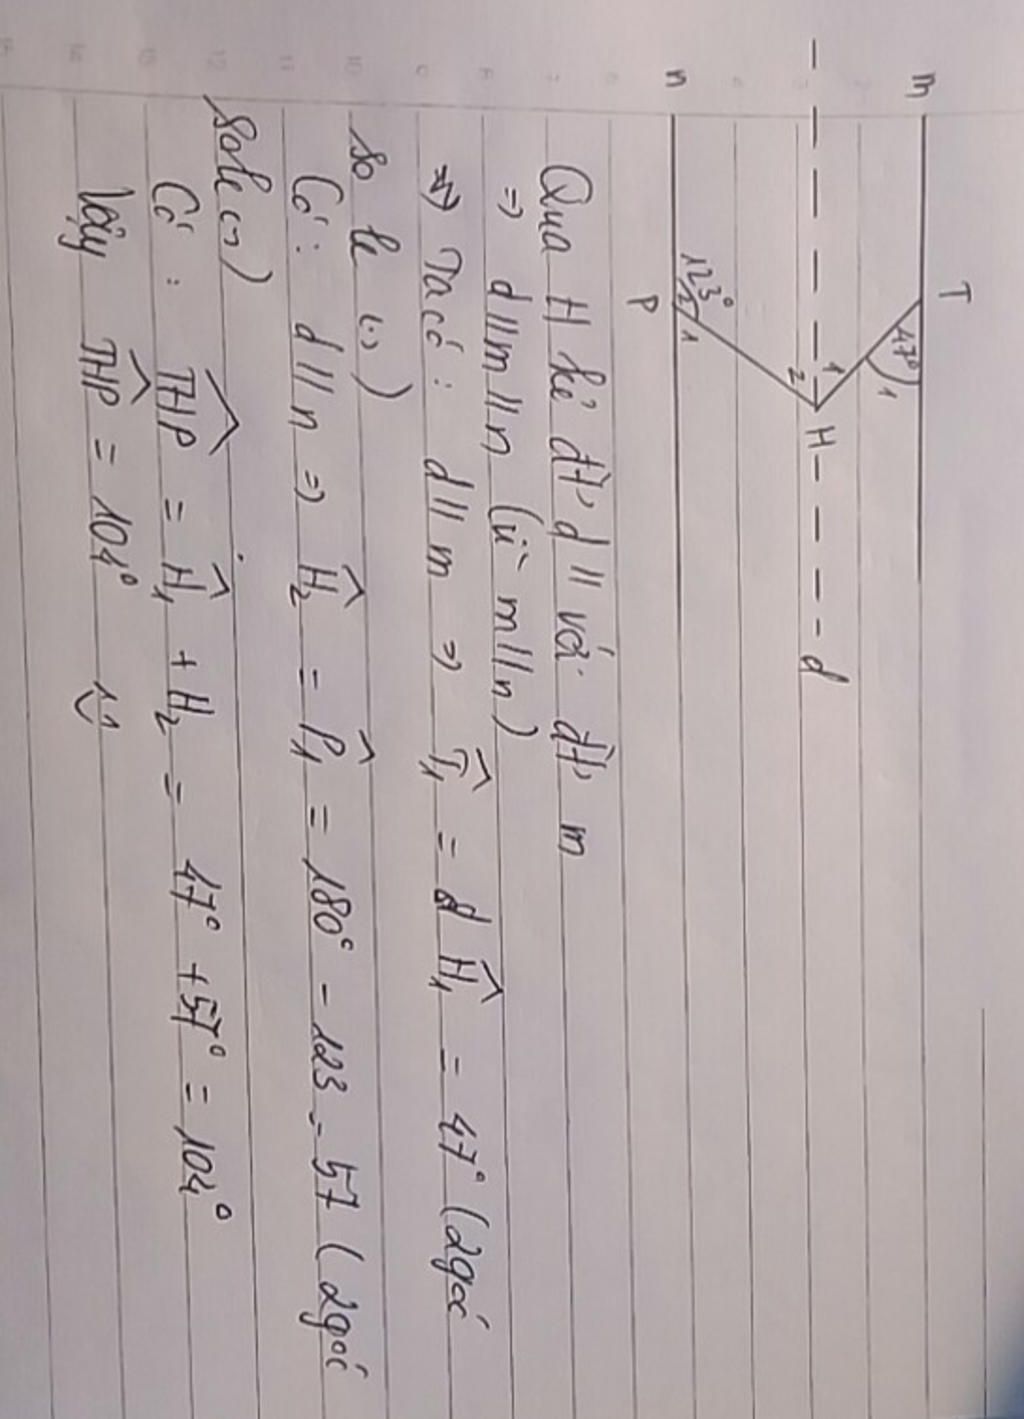 m T
47° 1
1
H d
2
123° 2 1
n P
Qua H kẻ đt' d // với đt' m
=> d // m // n (vì m // n)
=> Ta có : d // m => T̂₁ = Ĥ₁ = 47° (2góc
so le (-))
Có : d // n => Ĥ₂ = P̂₁ = 180° - 123 = 57 (2góc
sole (-))
Có : THP = Ĥ₁ + H₂ = 47° + 57° = 104°
Vậy THP = 104°